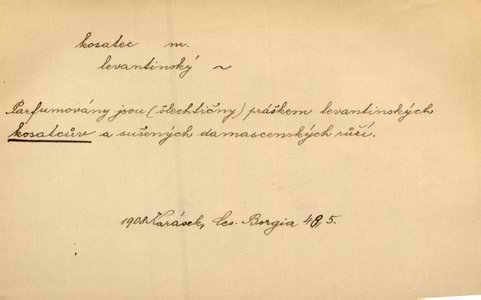 kosatec m.
levantinský ~
Parfumovány jsou (šlechtičny) práškem levantinských
kosatcův a sušených damascenských růží.
1908 Karásek, Ces. Borgia 48, 5.